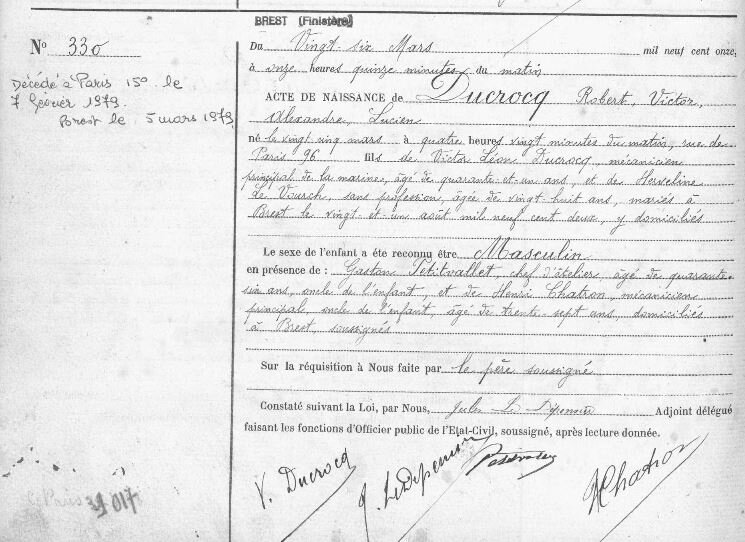 BREST (Finistère)
N° 330
Décédé à Paris 15e le
7 février 1979.
Brest le 5 mars 1979
Du Vingt-six Mars mil neuf cent onze,
à onze heures quinze minutes du matin
ACTE DE NAISSANCE de Ducrocq Robert, Victor,
Alexandre, Lucien
né le vingt cinq mars à quatre heures vingt minutes du matin, rue de
Paris 96 fils de Victor Léon Ducrocq, mécanicien
principal de la marine, âgé de quarante-et-un ans, et de Herveline
Le Vourch, sans profession, âgée de vingt huit ans, mariés à
Brest le vingt-et-un août mil neuf cent deux, y domiciliés
Le sexe de l'enfant a été reconnu être Masculin
en présence de : Gaston Petitvallet, chef d'atelier, âgé de quarante-
six ans, oncle de l'enfant, et de Henri Chatron, mécanicien
principal, oncle de l'enfant, âgé de trente-sept ans, domiciliés
à Brest, soussignés
Sur la réquisition à Nous faite par le père soussigné
Constaté suivant la Loi, par Nous, Jules Le Dépensier Adjoint délégué
faisant les fonctions d'Officier public de l'Etat-Civil, soussigné, après lecture donnée.
V. Ducrocq
J. Le Dépensier
HChatron